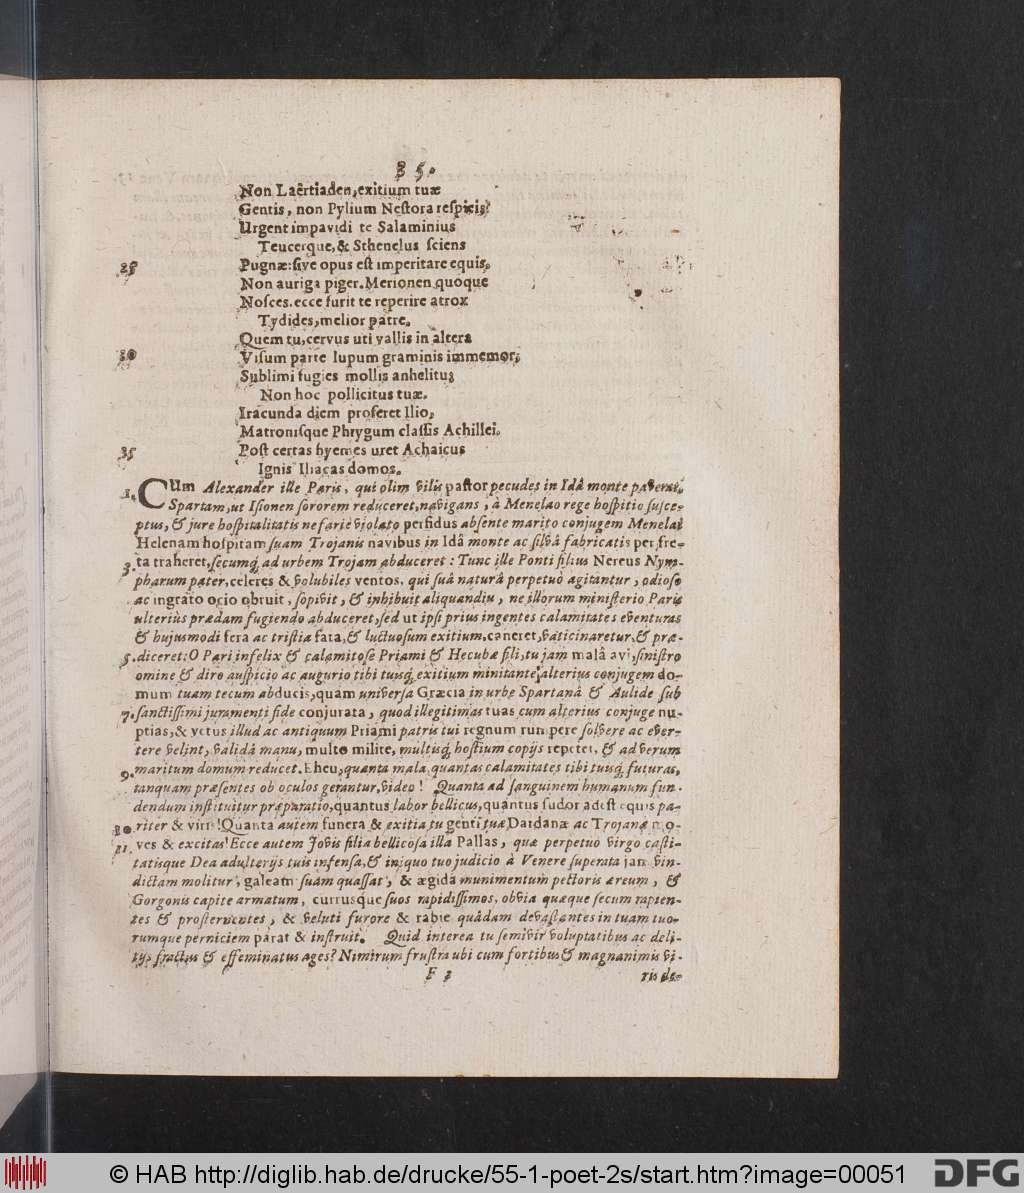 35.
Non Laêrtiaden, exitium tuæ
Gentis, non Pylium Nestora respicis?
Urgent impavidi te Salaminius
Teucerque, & Sthenelus sciens
25 Pugnæ: sive opus est imperitare equis,
Non auriga piger. Merionen quoque
Nosces. ecce furit te reperire atrox
Tydides, melior patre.
Quem tu, cervus uti vallis in altera
30 Visum parte lupum graminis immemor,
Sublimi fugies mollis anhelitu;
Non hoc pollicitus tuæ.
Iracunda diem proferet Ilio,
Matronisque Phrygum classis Achillei.
35 Post certas hyemes uret Achaicus
Ignis Iliacas domos.
1. CUm Alexander ille Paris, qui olim vilis pastor pecudes in Idâ monte paverat,
Spartam, ut Isionen sororem reduceret, navigans, à Menelao rege hospitio susce-
ptus, & jure hospitalitatis nefarie violato perfidus absente marito conjugem Menelai
Helenam hospitam suam Trojanis navibus in Idâ monte ac silvâ fabricatis per fre-
ta traheret, secumq́; ad urbem Trojam abduceret: Tunc ille Ponti filius Nereus Nym-
3. pharum pater, celeres & volubiles ventos, qui suâ naturâ perpetuò agitantur, odioso
ac ingrato ocio obruit, sopivit, & inhibuit aliquandiu, ne illorum ministerio Paris
ulteriùs prædam fugiendo abduceret, sed ut ipsi prius ingentes calamitates eventuras
& hujusmodi fera ac tristia fata, & luctuosum exitium, caneret, vaticinaretur, & præ-
5. diceret: O Pari infelix & calamitose Priami & Hecubæ fili, tu jam malâ avi, sinistro
omine & diro auspicio ac augurio tibi tuisq́; exitium minitante, alterius conjugem do-
mum tuam tecum abducis, quam universa Græcia in urbe Spartanâ & Aulide sub
7. sanctissimi juramenti fide conjurata, quod illegitimas tuas cum alterius conjuge nu-
ptias, & vetus illud ac antiquum Priami patris tui regnum rumpere solvere ac ever-
tere velint, validâ manu, multo milite, multisq́; hostium copijs repetet, & ad verum
9. maritum domum reducet. Eheu, quanta mala, quantas calamitates tibi tuisq́; futuras,
tanquam præsentes ob oculos gerantur, video! Quanta ad sanguinem humanum fun-
dendum instituitur præparatio, quantus labor bellicus, quantus sudor adest equis pa-
10 riter & viris! Quanta autem funera & exitia tu genti tuæ Dardanæ ac Trojanæ mo-
11. ves & excitas! Ecce autem Jovis filia bellicosa illa Pallas, quæ perpetuò virgo casti-
tatisque Dea adulterijs tuis infensa, & iniquo tuo judicio à Venere superata jam vin-
dictam molitur, galeam suam quassat, & ægida munimentum pectoris æreum, &
Gorgonis capite armatum, currusque suos rapidissimos, obvia quæque secum rapien-
tes & prosternentes, & veluti furore & rabie quâdam devastantes in tuam tuo-
rumque perniciem parat & instruit. Quid interea tu semivir voluptatibus ac deli-
tijs fractus & effeminatus ages? Nimirum frustra ubi cum fortibus & magnanimis vi-
F 2 ris de-
© HAB http://diglib.hab.de/drucke/55-1-poet-2s/start.htm?image=00051
DFG